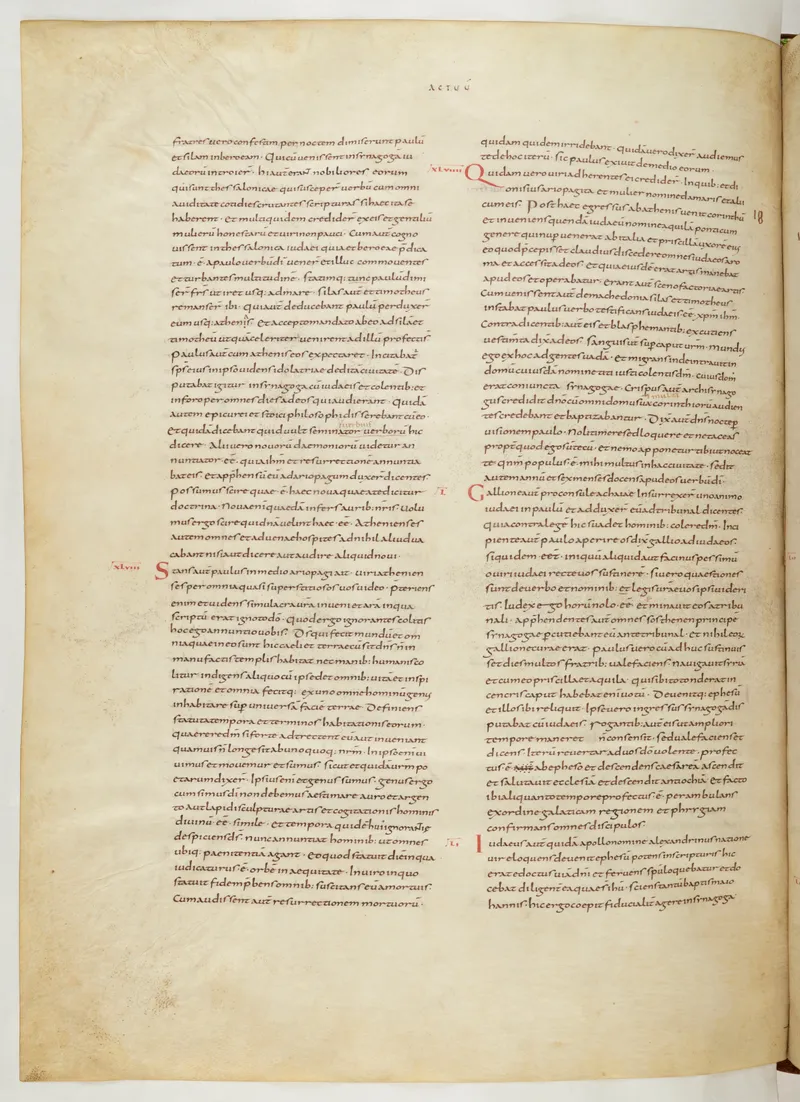 ACTUŪ
fratres uero confestim per noctem dimiserunt paulū
et silam in beroeam · Qui cū uenissent in synagogā iu
daeorū introier̄ · hi autē erant nobiliores eorum
qui sunt thessalonicae · qui susceper̄ uerbū cum omni
auiditate cottidie scrutantes scripturas si haec ita se
haberent · Et multi quidem credider̄ ex eis et gentiliū
mulierū honestarū et uiri non pauci · Cum autē cogno
uissent in thessalonica iudaei quia et beroeae p̄dica
tum · ē · a paulo uerbū dī uener̄ et illuc commouentes
et turbantes multitudinē · statimq; tunc paulū dimi
ser̄ fr̄s ut iret usq; ad mare · silas autē et timotheus
remanser̄ ibi · qui autē deducebant paulū perduxer̄
eum usq; athenis · Et accepto mandato ab eo ad silā et
timotheū ut quā celeriter uenirent ad illū profecti s̄
paulus autē cum athenis eos expectaret · Incitabat̄
sp̄s eius in ipso uidens idolatriae deditā ciuitatē · Dis
putabat igitur in synagoga cū iudaeis et colentib; et
in foro per omnes dies ad eos qui audierant · quidā
autem epicurei et stoici philosophi disserebant cū eo ·
et quidā dicebant quid uult seminator uerborū hic
dicere · Alii uero nouorū daemoniorū uidetur an
nuntiator · eē · quia ihm̄ et resurrectionē annuntia
bat eis · et app̄hensū eū ad ariopagum duxer̄ dicentes
possumus scire quae · ē · haec noua quae a te dicitur
doctrina · Noua enī quaedā infers aurib; nr̄is · Uolu
mus ergo scire quidnā uelint haec · eē · Athenienses
autem omnes et aduenae hospites ad nihil aliud ua
cabant nisi aut dicere aut audire aliquid noui ·
XLVIII Stans autē paulus in medio ariopagi ait · uiri athen
ses per omnia quasi superstitiosos uos uideo · p̄teriens
enim et uidens simulacra ur̄a inueni et arā in qua
scriptū erat ignoto dō · quod ergo ignorantes colitis
hoc ego annuntio uobis · Dс̄ qui fecit mundū et om
nia quae in eo sunt hic caeli et terrae cū sit dn̄s n̄ in
manufactis templis habitat nec manib; humanis co
litur indigens aliquo cū ipse det omnib; uitā et inspi
rationē et omnia fecitq; ex uno omne hominū genus
inhabitare sup̄ uniuersā faciē terrae · Definiens
statuta tempora et terminos habitationis eorum ·
quaerere dm̄ si forte adtrectent eū aut inueniant
quamuis n̄ longe sit ab unoquoq; nr̄m · In ipso enī ui
uimus et mouemur et sumus · sicut et quidā ur̄m po
etarum dixer̄ · Ipsius enī et genus sumus · genus ergo
cum simus dī non debemus aestimare auro et argen
to aut lapidi sculpturae artis et cogitationis hominis
diuinū · eē · simile · et tempora quidē huius ignorantie
despiciens ds̄ · nunc annuntiat hominib; ut omnes
ubiq; paenitentiā agant · Et quod statuit diem in qua
iudicaturus · ē · orbē in aequitate · In uiro in quo
statuit fidem p̄bens omnib; suscitans eū a mortuis ·
Cum audissent autē resurrectionem mortuorū ·
quidam quidem irridebant · quidā uero dixer̄ audiemus
te de hoc iterū · sic paulus exiuit de medio eorum ·
XLVIIII Quidam uero uiri adherentes ei credider̄ · In quib; et di
onisius ariopagita et mulier nomine damaris et alii
cum eis · Post haec egressus ab athenis uenit corinthū 18
et inueniens quendā iudaeū nomine aquilā ponticum
genere qui nup̄ uenerat ab italia et priscillā uxorē eius
eo quod p̄cepisset claudius discedere omnes iudaeos a ro
ma et accessit ad eos · et quia eiusdē erat artis manebat
apud eos et operabatur · erant autē scenofactoriae artis
Cum uenissent autē de machedonia silas et timotheus
instabat paulus uerbo testificans iudaeis · eē · xpm̄ ihm̄ ·
Contradicentib; autē eis et blasphemantib; excutiens
uestimta dix ad eos · sanguis ur̄ sup̄ caput ur̄m · mundus
ego ex hoc ad gentes uadā · et migrans inde intrauit in
domū cuiusdā nomine titi iusti colentis dm̄ · cuius dom̄
erat coniuncta synagogae · Crispus autē archisynago
gus credidit dn̄o cū omni domo sua et corinthiorū audien
tes credebant et baptizabantur · Dix autē dn̄s nocte p̄
uisionem paulo · Noli timere sed loquere et ne taceas
propt̄ quod ego sū tecū · et nemo apponetur tibi ut noceat
te · qn̄m populus · ē · mihi multus in hac ciuitate · sedit
autem annū et sex menses docens apud eos uerbū dī ·
L Gallione autē proconsule achaiae · Insurrexer̄ uno animo
iudaei in paulū et adduxer̄ eū ad tribunal dicentes ·
quia contra legē hic suadet hominib; colere dm̄ · Inci
piente autē paulo aperire os dix gallio ad iudaeos ·
si quidem eēt · iniquū aliquid aut facinus pessimū
o uiri iudaei recte uos sustinerē · si uero quaestiones
sunt de uerbo et nominib; et legis urae uos ipsi uideri
tis · Iudex ego horū nolo · eē · et minauit eos a tribu
nali · app̄hendentes autē omnes sosthenen principē
synagogae p̄cutiebant eū ante tribunal · et nihil eoɼ
gallioni curae erat · paulus uero cū adhuc sustinuis
set dies multos fratrib; ualefaciens · nauigauit syriā
et cum eo priscilla et aquila · qui sibi totonderat in
cencris caput habebat enī uotū · Deuenitq; ephesū
et illos ibi reliquit · Ipse uero ingressus synagogā dis
putabat cū iudaeis · rogantib; autē eis ut ampliori
tempore maneret n̄ consensit · sed ualefaciens et
dicens · Iterū reuertar ad uos dō uolente · profec
tus · ē · ab epheso et descendens caesareā ascendit
et salutauit ecclesiā et descendit antiochiā · Et facto
ibi aliquanto tempore profectus · ē · perambulans
ex ordine galaticam regionem et phrygiam
confirmans omnes discipulos ·
LI Iudaeus autē quidā apollo nomine alexandrinus natione
uir eloquens deuenit ephesū potens in scripturis · hic
erat edoctus uiā dn̄i et feruens sp̄u loquebatur et do
cebat diligent̄ ea quae s̄ ihū · sciens tantū baptisma io
hannis · hic ergo coepit fiducialit̄ agere in synagoga